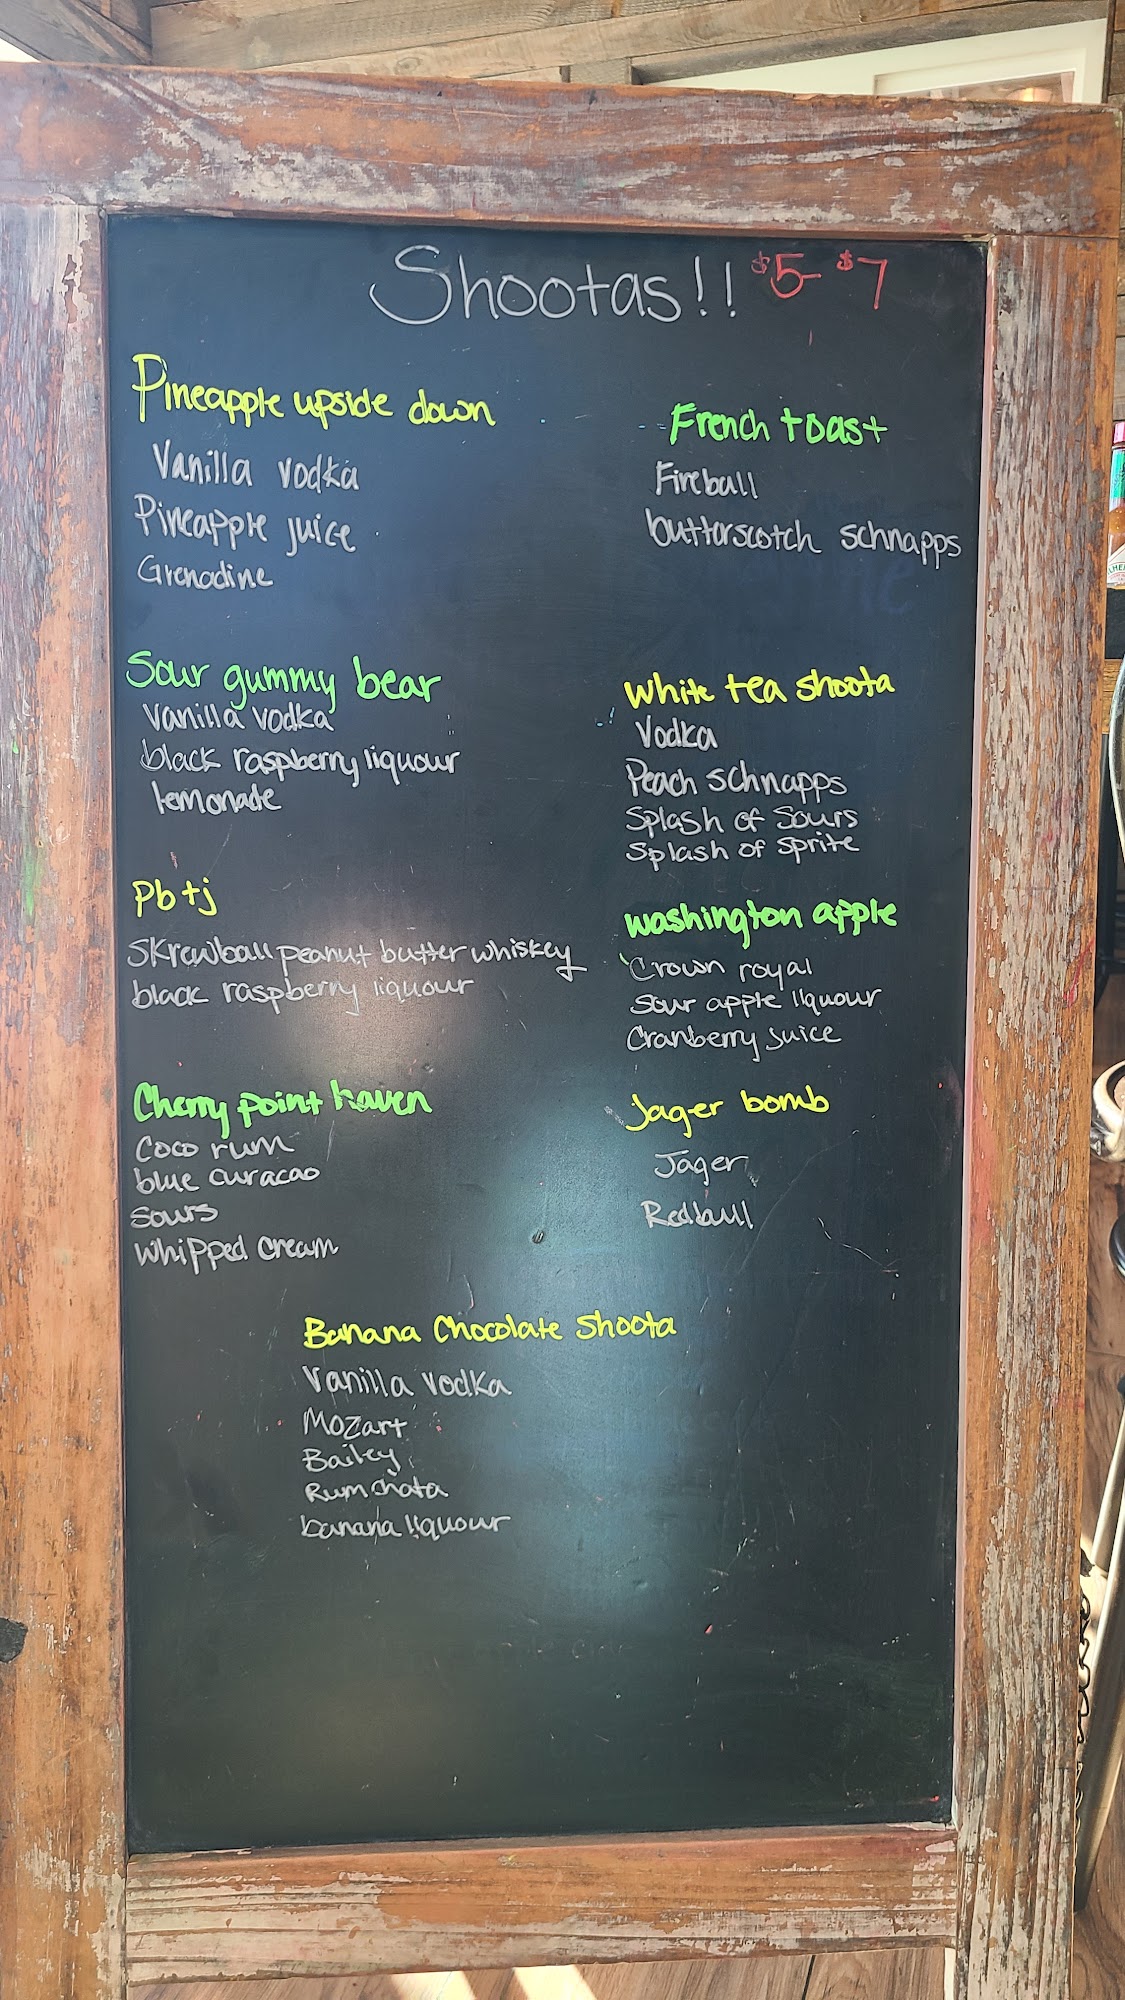 Shootas!! $5-$7
Pineapple upside down
Vanilla vodka
Pineapple juice
Grenadine
French toast
Fireball
butterscotch schnapps
Sour gummy bear
Vanilla vodka
black raspberry liquour
lemonade
White tea shoota
Vodka
Peach schnapps
Splash of Sours
Splash of sprite
Pb+j
Skrewball peanut butter whiskey
black raspberry liquour
washington apple
Crown royal
Sour apple liquour
Cranberry juice
Cherry point haven
Coco rum
blue curacao
Sours
Whipped cream
Jager bomb
Jager
Redbull
Banana Chocolate Shoota
Vanilla vodka
Mozart
Bailey
Rumchata
banana liquour